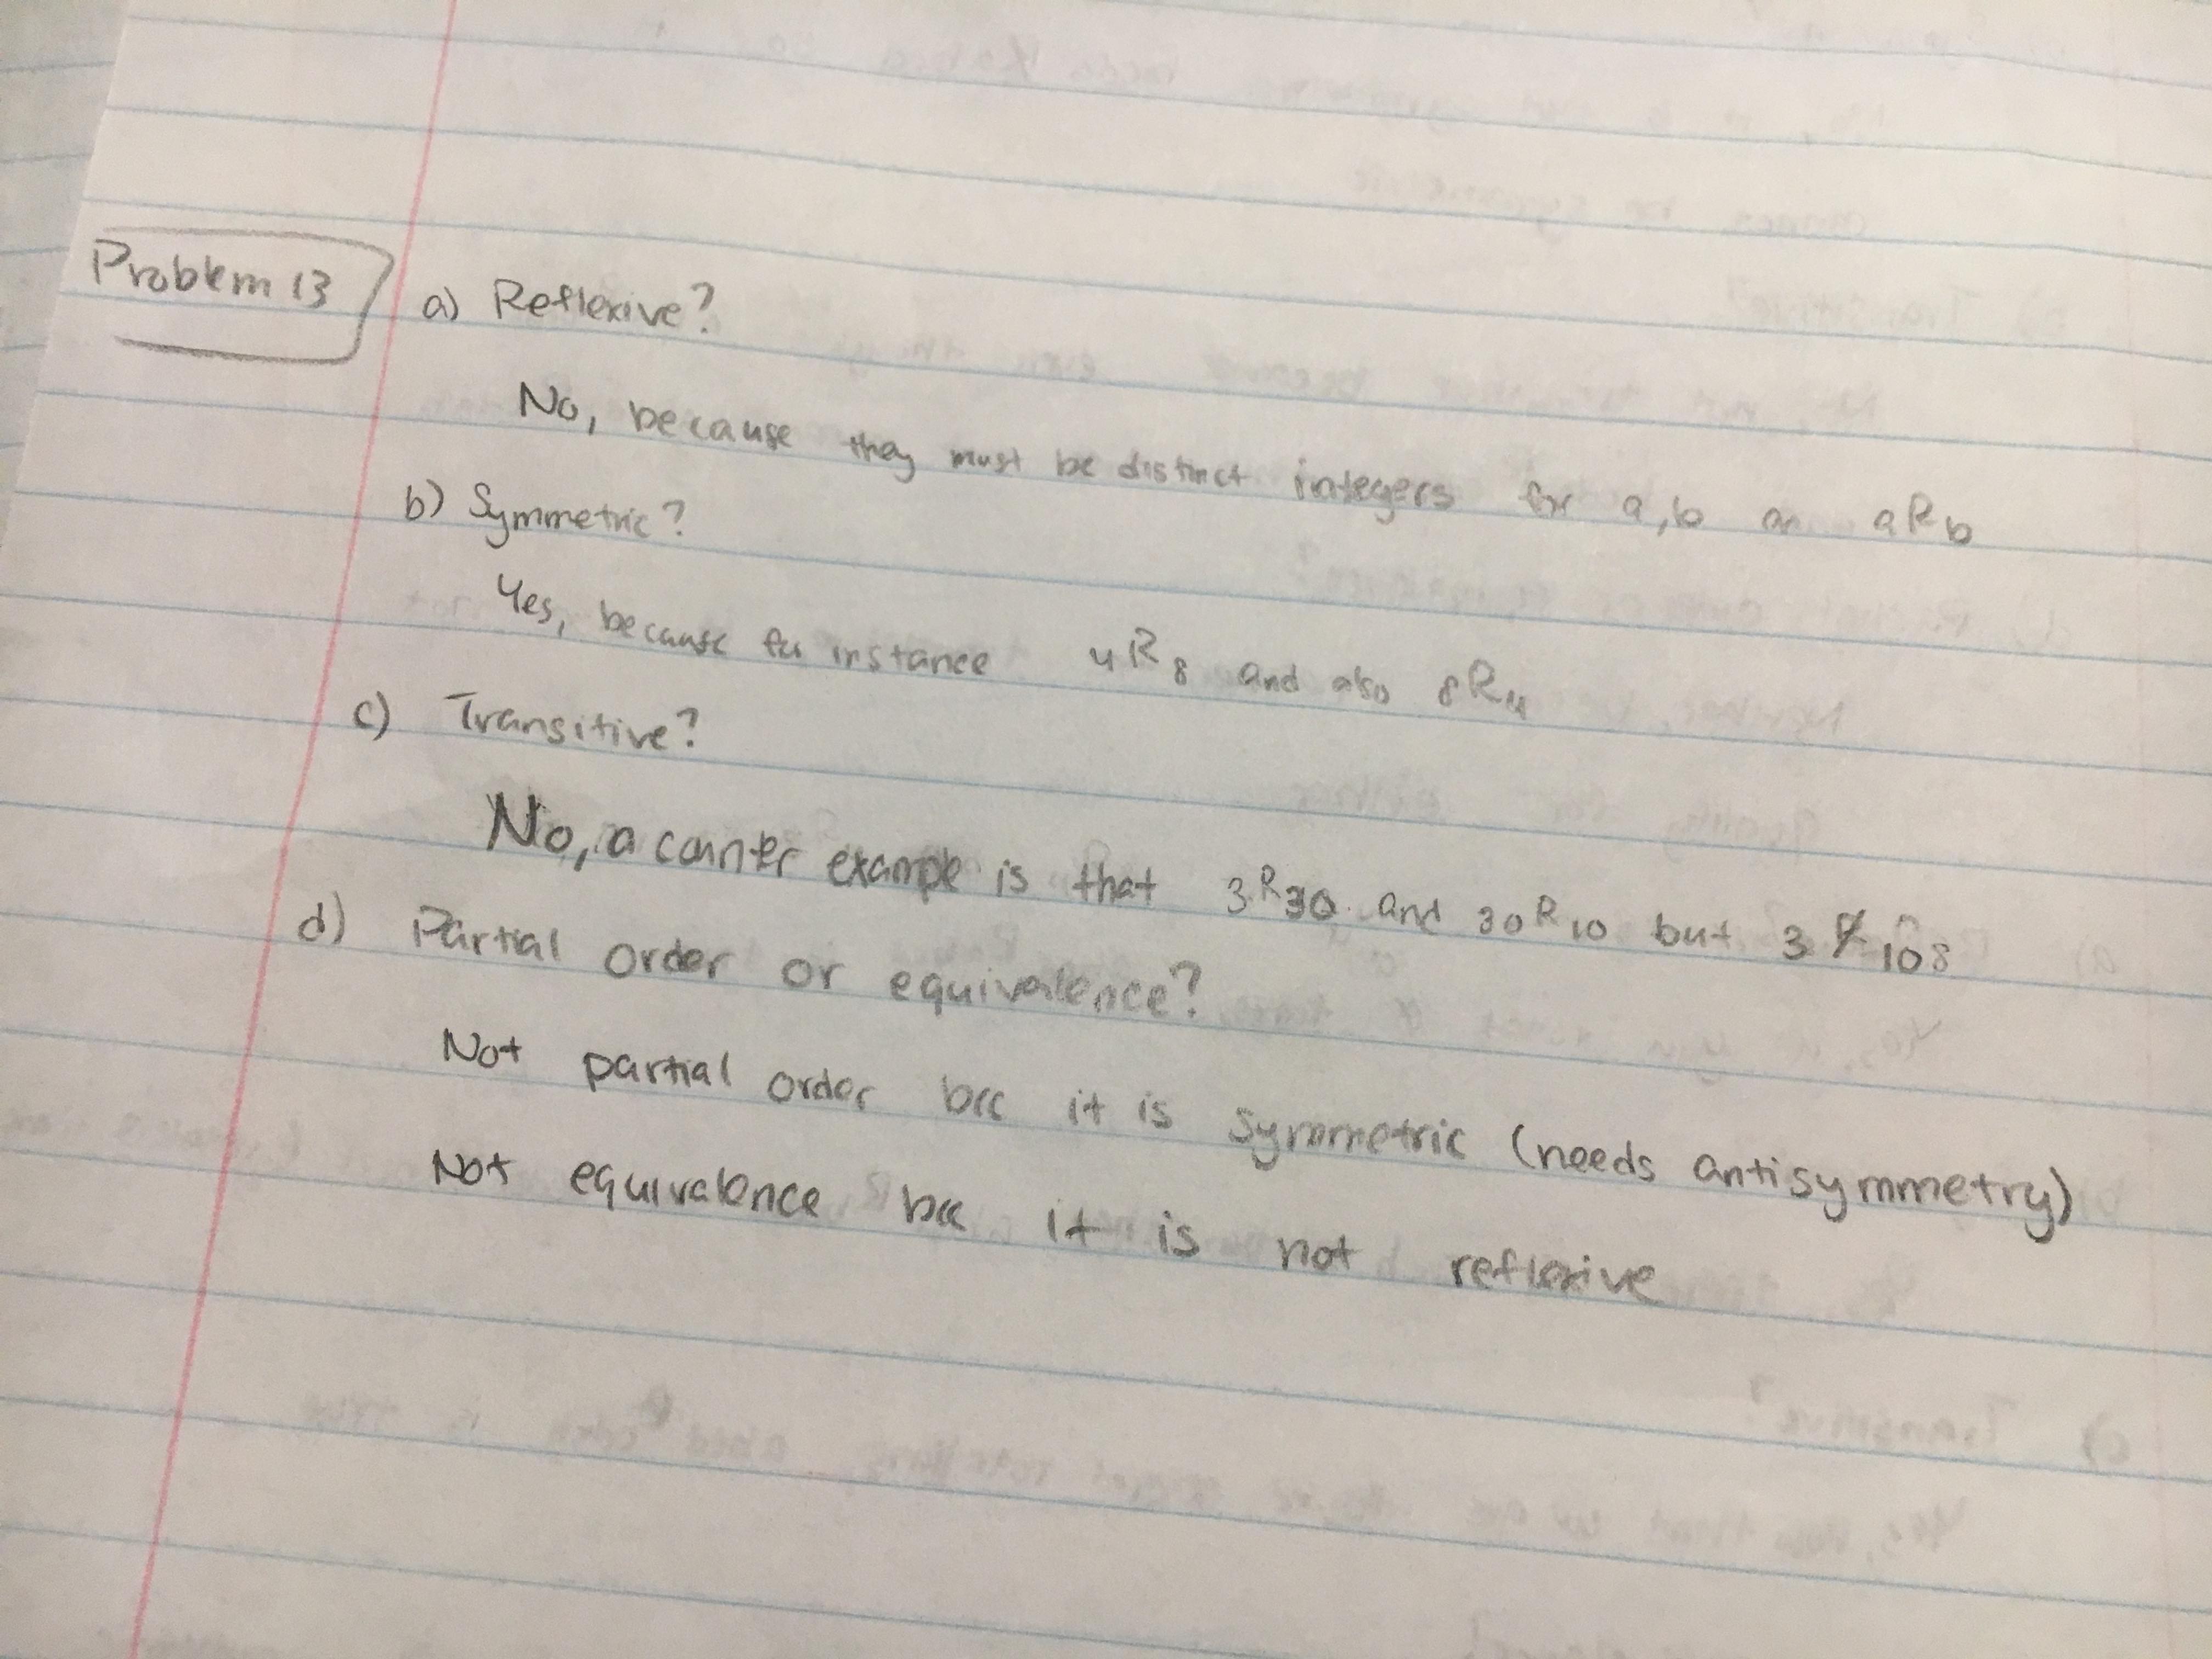 Problem 13
a) Reflexive?
No, because they must be distinct integers for a,b on aRb
b) Symmetric?
Yes, because for instance 4R8 and also 8R4
c) Transitive?
No, a counter example is that 3R30 and 30R10 but 3R̸10
d) Partial order or equivalence?
Not partial order bcc it is symmetric (needs antisymmetry)
Not equivalence bcc it is not reflexive